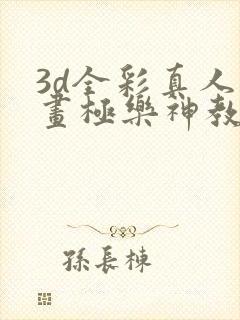 3d全彩真人
畫極樂神教
孫長棟